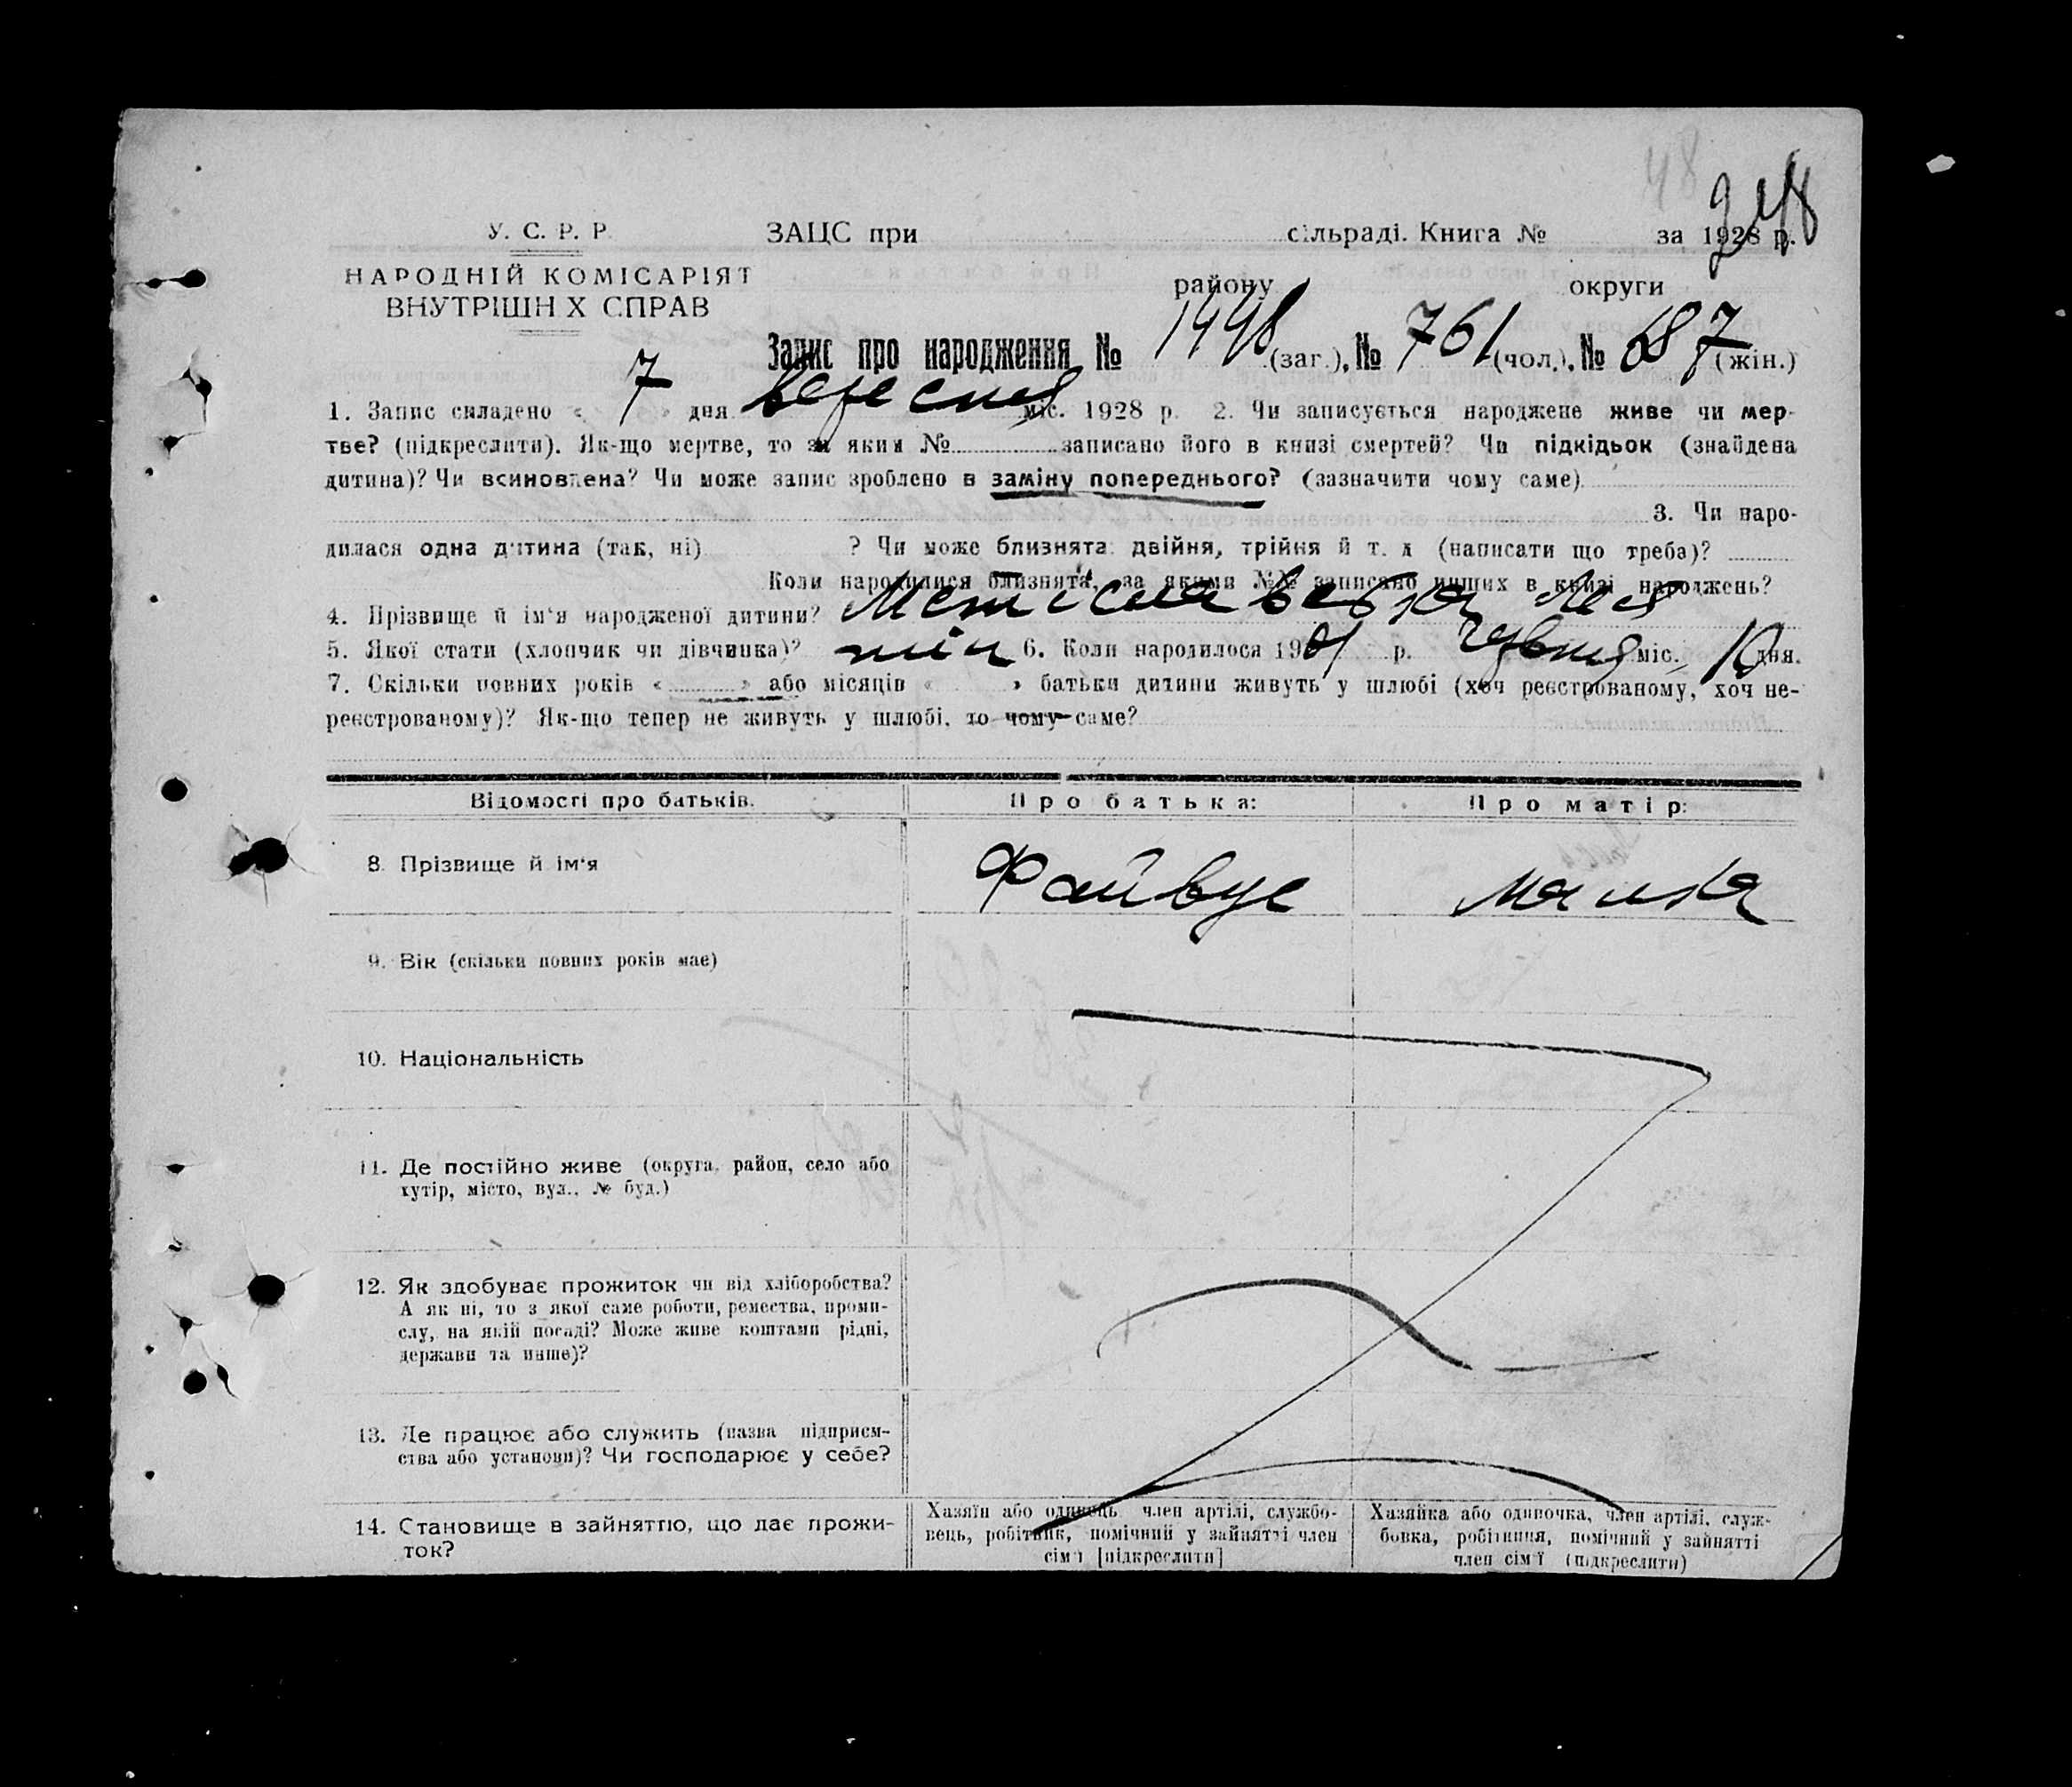 48
248
У. С. Р. Р.
НАРОДНІЙ КОМІСАРІЯТ
ВНУТРІШН Х СПРАВ
ЗАЦС при сільраді. Книга № за 1928 р.
району округи
Запис про народження № 1448 (заг.), № 761 (чол.), № 687 (жін.)
1. Запис складено « 7 » дня вересня міс. 1928 р. 2. Чи записується народжене живе чи мер-
тве? (підкреслити). Як-що мертве, то за яким № записано його в книзі смертей? Чи підкідьок (знайдена
дитина)? Чи всиновлена? Чи може запис зроблено в заміну попереднього? (зазначити чому саме)
3. Чи наро-
дилася одна дитина (так, ні) ? Чи може близнята: двійня, трійня й т. д (написати що треба)?
Коли народилися близнята, за якими №№ записано инших в книзі народжень?
4. Прізвище й ім'я народженої дитини?
5. Якої стати (хлопчик чи дівчинка)? жін 6. Коли народилося 190 р. червня міс. дня.
7. Скільки повних років « » або місяців « » батьки дитини живуть у шлюбі (хоч реєстрованому, хоч не-
реєстрованому)? Як-що тепер не живуть у шлюбі, то чому саме?
Відомості про батьків. Про батька: Про матір:
8. Прізвище й ім'я Файвус Малка
9. Вік (скільки повних років має)
10. Національність
11. Де постійно живе (округа, район, село або
хутір, місто, вул., № буд.)
12. Як здобуває прожиток чи від хліборобства?
А як ні, то з якої саме роботи, ремества, проми-
слу, на якій посаді? Може живе коштами рідні,
держави та инше)?
13. Де працює або служить (назва підприєм-
ства або установи)? Чи господарює у себе?
14. Становище в зайняттю, що дає прожи-
ток?
Хазяїн або одинець, член артілі, службо-
вець, робітник, помічний у зайнятті член
сім'ї [підкреслити]
Хазяйка або одиночка, член артілі, служ-
бовка, робітниця, помічний у зайнятті
член сім'ї (підкреслити)